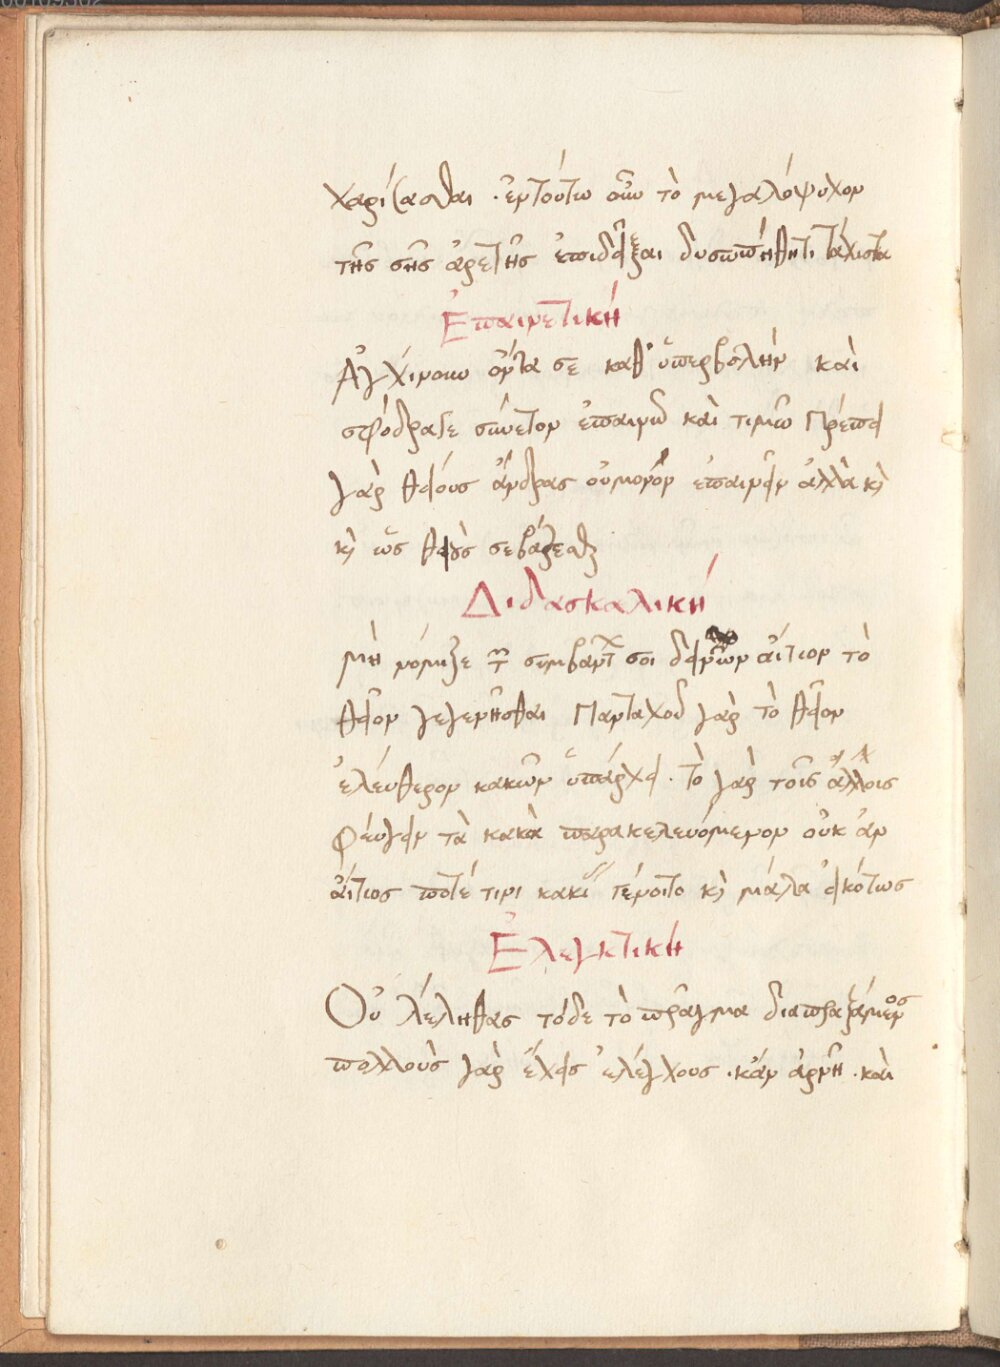 χαρίζασθαι · ἐν τούτω οὖν τὸ μεγαλόψυχον
τῆς σῆς ἀρετῆς ἐπιδεῖξαι δυσωπήθητι τάχιστα
Ἐπαινετική
Ἀγχίνοιαν ὄντα σε καθ' ὑπερβολὴν καὶ
σφόδρα σε σύνετον ἐπαινῶ καὶ τιμῶ Πρέπει
γὰρ θείους ἄνδρας οὐμονὸν ἐπαινεῖν ἀλλὰ κὶ
κὶ ὡς θεοὺς σεβάζεσθαι
Διδασκαλική
Μὴ νόμιζε τῶν συμβάντων σοι δεινῶν αἴτιον τὸ
θεῖον γεγενῆσθαι Πανταχοῦ γὰρ τὸ θεῖον
ἐλεύθερον κακῶν ὑπάρχει · Τὸ γὰρ τοῖς ἄλλοις
φεύγειν τὰ κακὰ παρακελευόμενον οὐκ ἂν
αἴτιος ποτέ τινι κακῶν γένοιτο κὶ μάλα εἰκότως
Ἐλεγκτική
Οὐ λέληθας τόδε τὸ πρᾶγμα διαπραξάμενος
πολλοὺς γὰρ ἔχεις ἐλέγχους · κἂν ἀρνῆ · καὶ